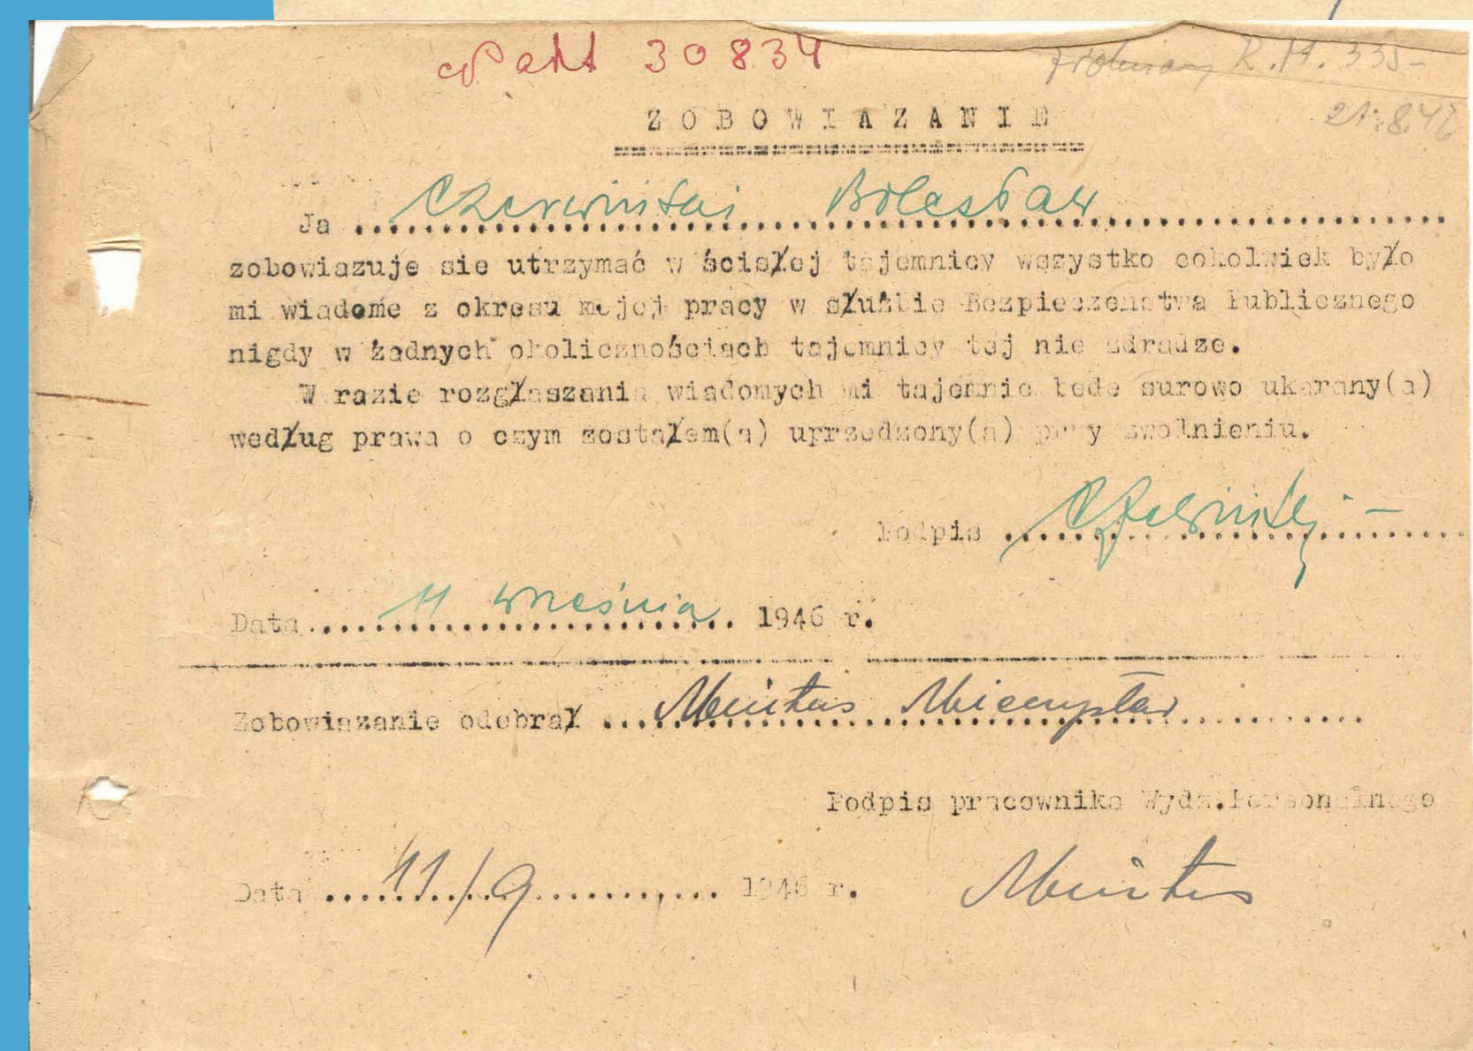 akt 30834
R.M. 335-
21.8.46
ZOBOWIAZANIE
Ja Czerwiński Bolesław
zobowiazuje sie utrzymać w ścisłej tajemnicy wszystko cokolwiek było
mi wiadome z okresu mojej pracy w służbie Bezpieczenstwa Publicznego
nigdy w żadnych okolicznościach tajemnicy tej nie zdradze.
W razie rozgłaszania wiadomych mi tajemnic bede surowo ukarany(a)
według prawa o czym zostałem(a) uprzedzony(a) przy zwolnieniu.
Podpis Czerwiński
Data 11 września 1946 r.
Zobowiazanie odebrał Mieczysław
Podpis pracownika Wydz.Personalnego
Data 11/9 1946 r.